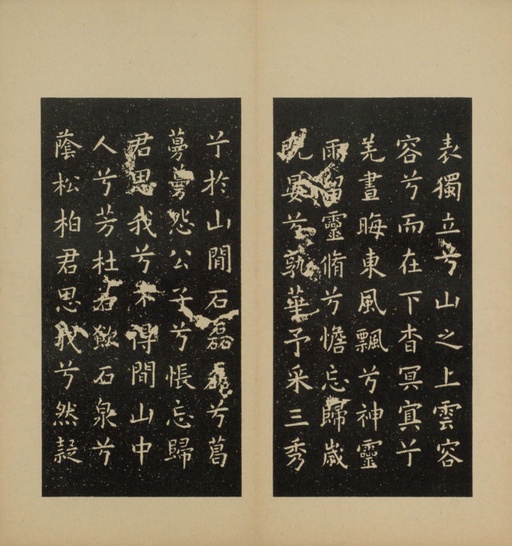 表獨立兮山之上雲容
容兮而在下杳冥冥兮
羌晝晦東風飄兮神靈
雨留靈脩兮憺忘歸歲
既晏兮孰華予采三秀
兮於山間石磊磊兮葛
蔓蔓怨公子兮悵忘歸
君思我兮不得間山中
人兮芳杜若飲石泉兮
蔭松柏君思我兮然疑